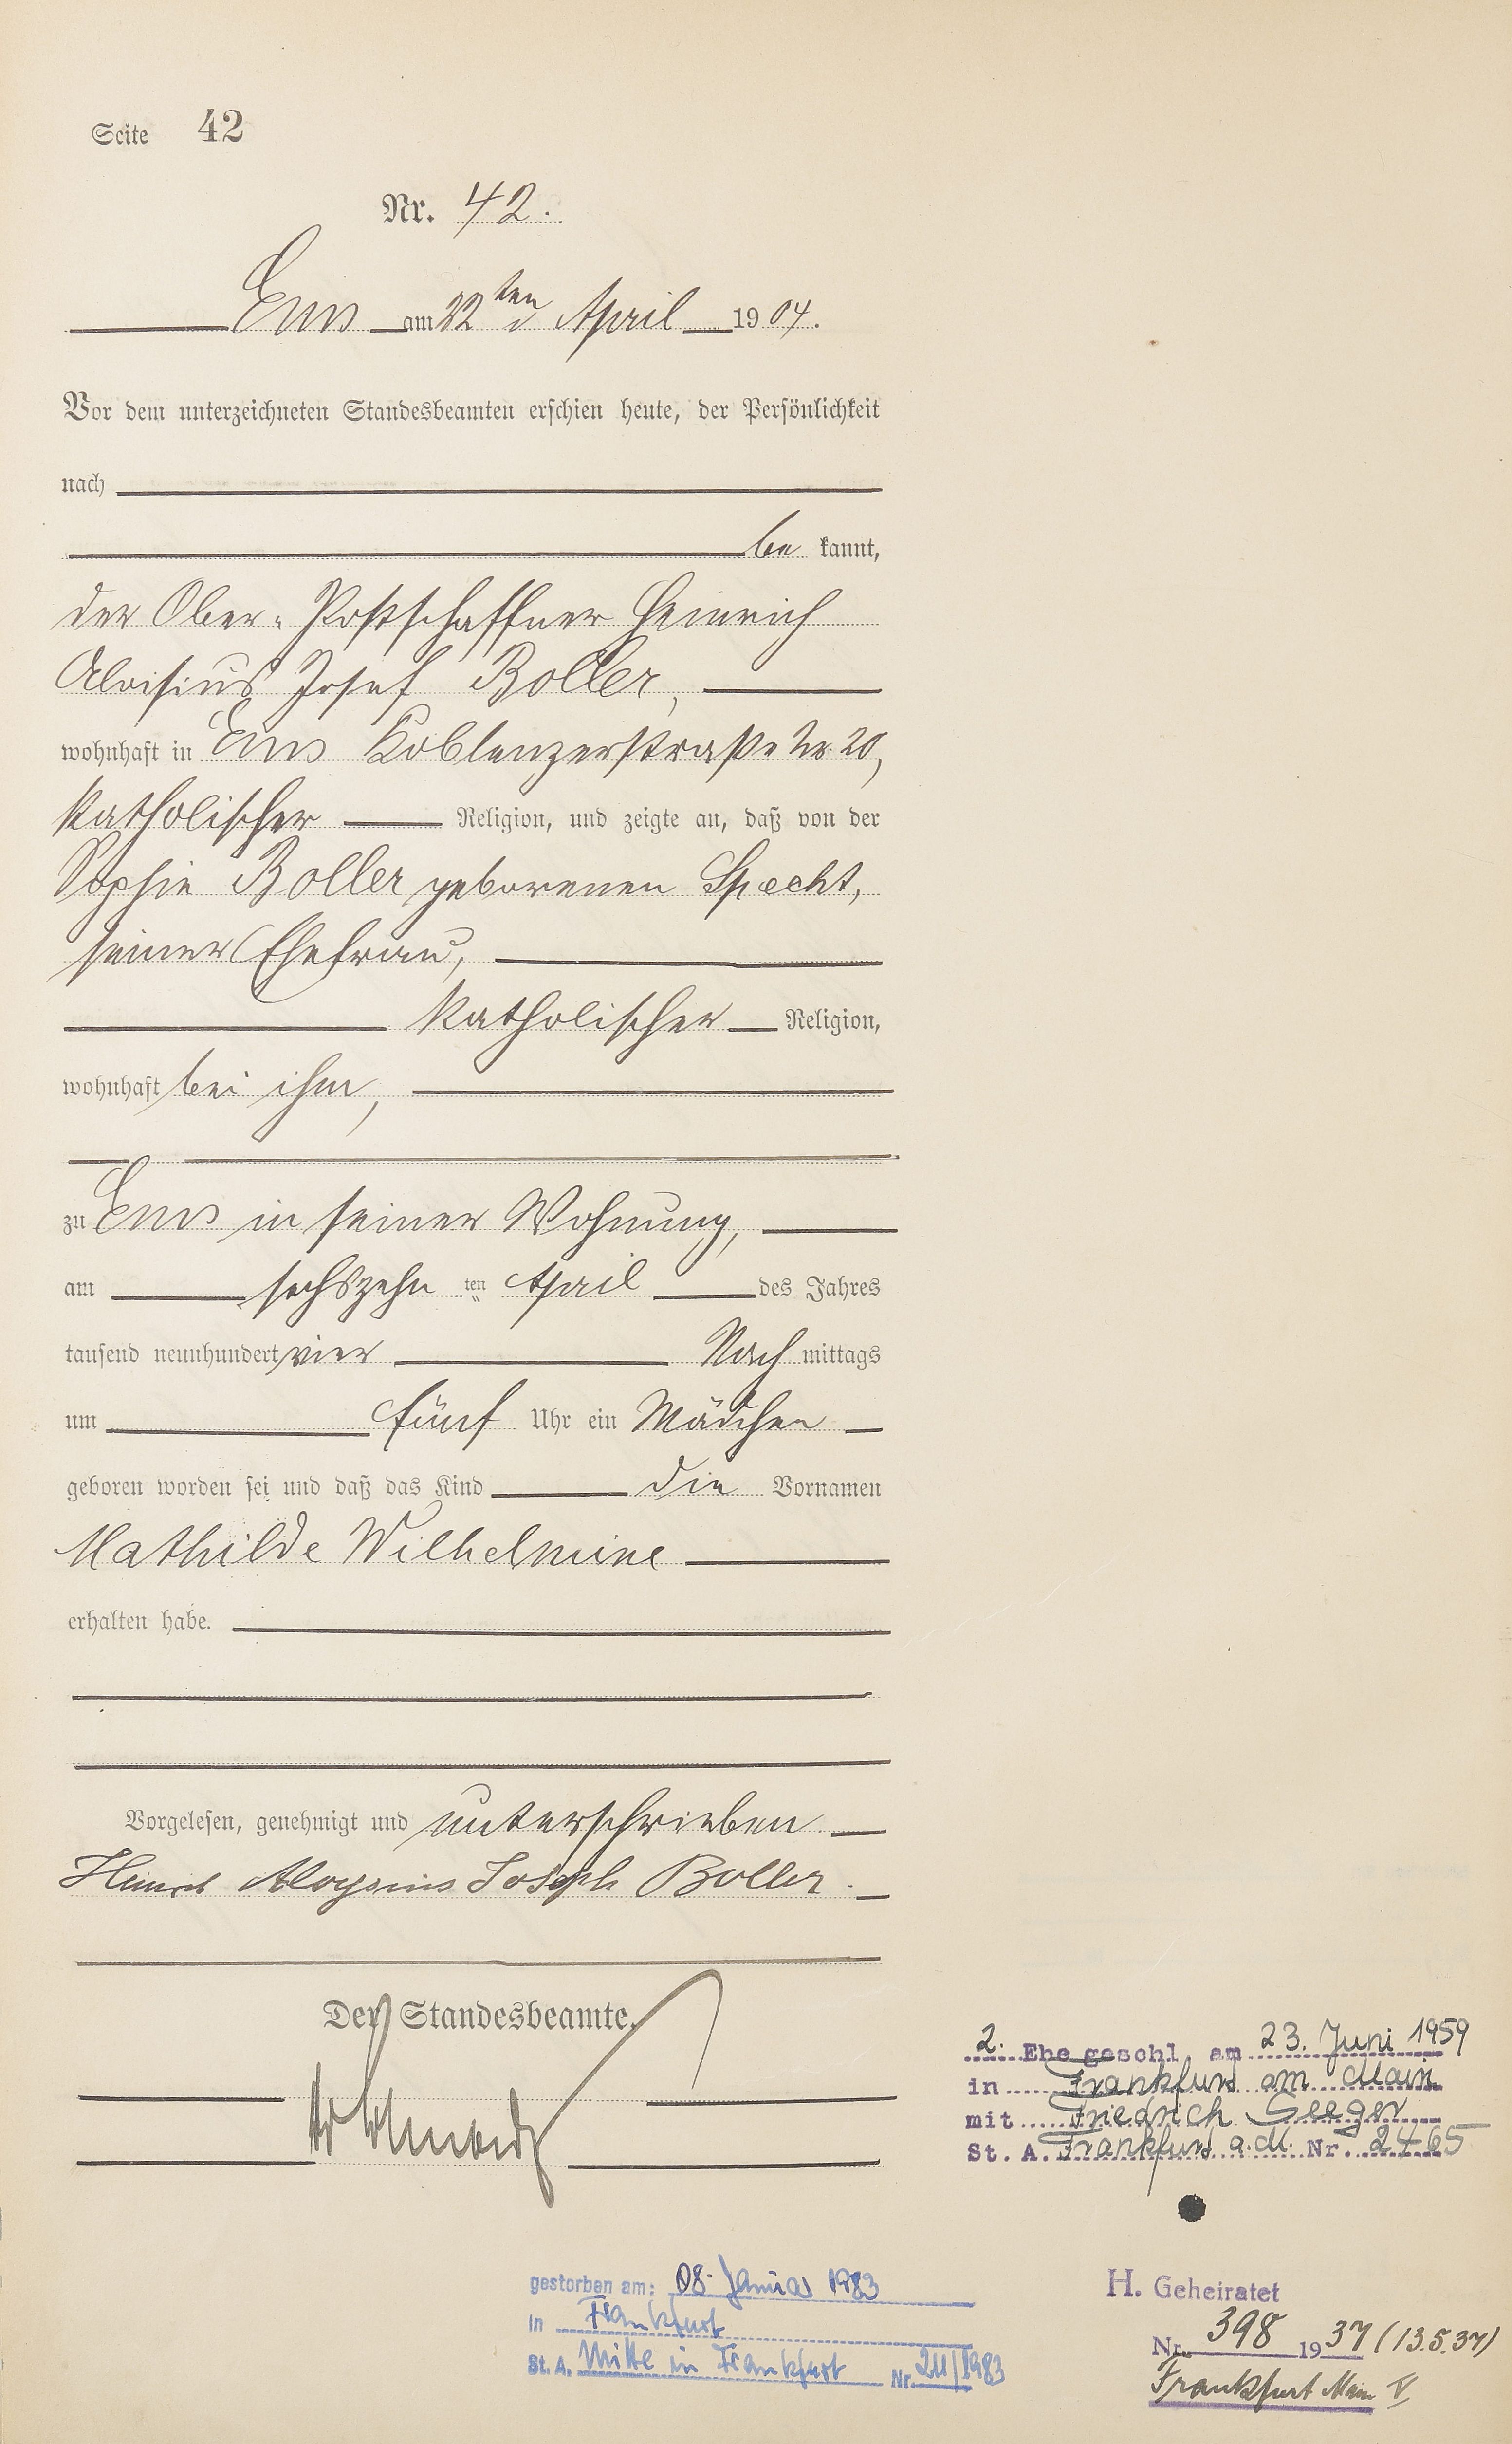 Seite 42
Nr. 42.
Ems am 22ten April 1904.
Vor dem unterzeichneten Standesbeamten erschien heute, der Persönlichkeit
nach
be kannt,
der Ober-Postschaffner Heinrich
Aloisius Josef Boller,
wohnhaft in Ems Koblenzerstraße Nr. 20,
katholischer Religion, und zeigte an, daß von der
Sophie Boller geborenen Specht,
seiner Ehefrau,
katholischer Religion,
wohnhaft bei ihm,
zu Ems in seiner Wohnung,
am sechszehn ten April des Jahres
tausend neunhundert vier Nach mittags
um fünf Uhr ein Mädchen
geboren worden sei und daß das Kind die Vornamen
Mathilde Wilhelmine
erhalten habe.
Vorgelesen, genehmigt und unterschrieben
Aloysius Joseph Boller.
Der Standesbeamte.
2. Ehe geschl. am 23. Juni 1959
in Frankfurt am Main
mit Friedrich Seeger
St. A. Frankfurt a.M. Nr. 2465
gestorben am: 08. Januar 1983
in Frankfurt
St. A. Mitte in Frankfurt Nr. 211/1983
H. Geheiratet
Nr. 398 1937 (13.5.37)
Frankfurt Main V